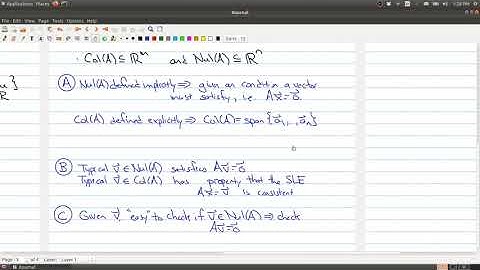 Applications Places
Journal
File Edit View Journal Tools Options Help
· Col(A) ⊆ ℝᵐ and Nul(A) ⊆ ℝⁿ
}
ℝ
Ⓐ Nul(A) defined implicitly ⇒ given an condition a vector
must satisfy, i.e. Ax⃗=0⃗.
Col(A) defined explicitly ⇒ Col(A)=span{a⃗₁, ,a⃗ₙ}
Ⓑ Typical v⃗∈Nul(A) satisfies Av⃗=0⃗
Typical v⃗∈Col(A) has property that the SLE
Ax⃗=v⃗ is consistent
Ⓒ Given v⃗, "easy" to check if v⃗∈Nul(A) ⇒ check
Av⃗=0⃗
Layer: Layer 1